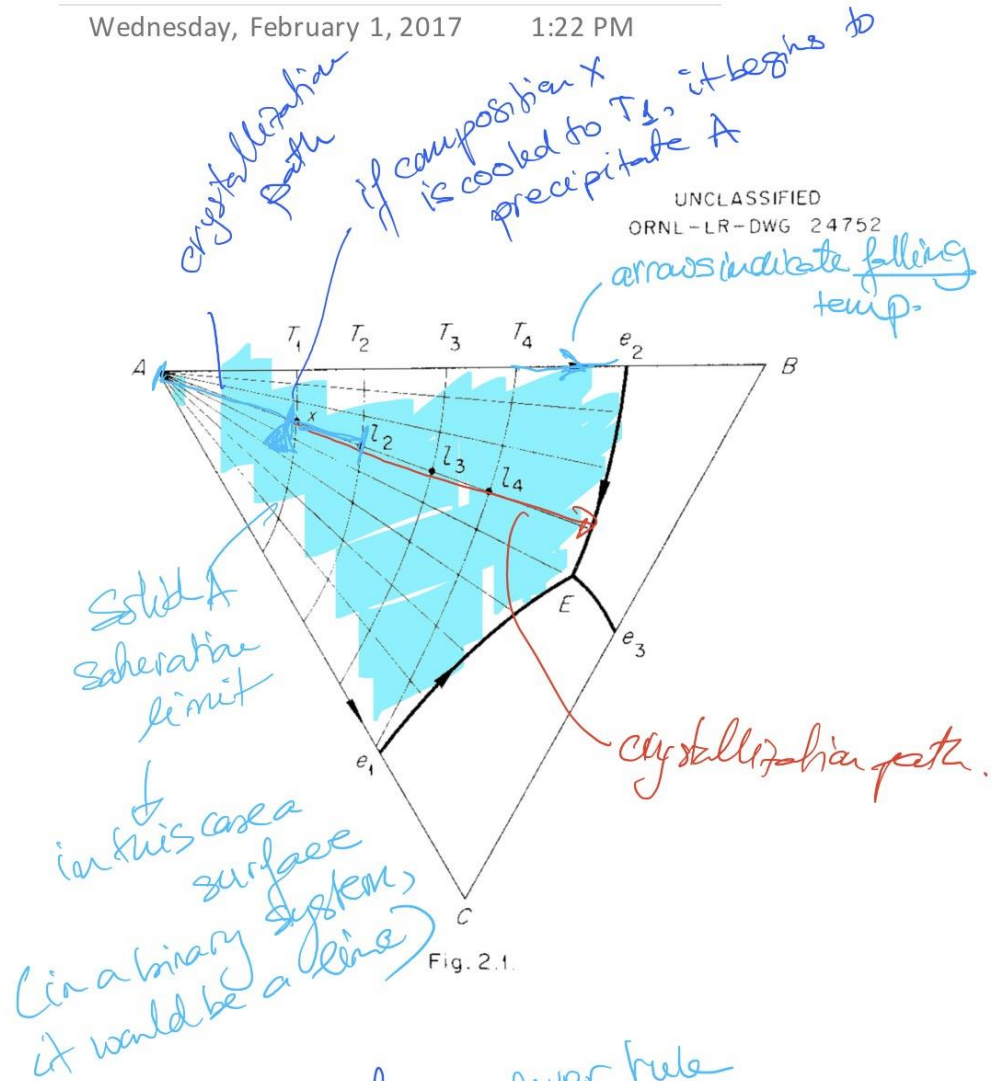 Wednesday, February 1, 2017 1:22 PM
crystallization
path
if composition X
is cooled to T1, it begins to
precipitate A
UNCLASSIFIED
ORNL-LR-DWG 24752
arrows indicate falling
temp.
A T1 T2 T3 T4 e2 B
x l2 l3 l4
Solid A
saturation
limit
E
e3
e1
crystallization path.
in this case a
surface
(in a binary system,
it would be a line)
C
Fig. 2.1.
lever rule